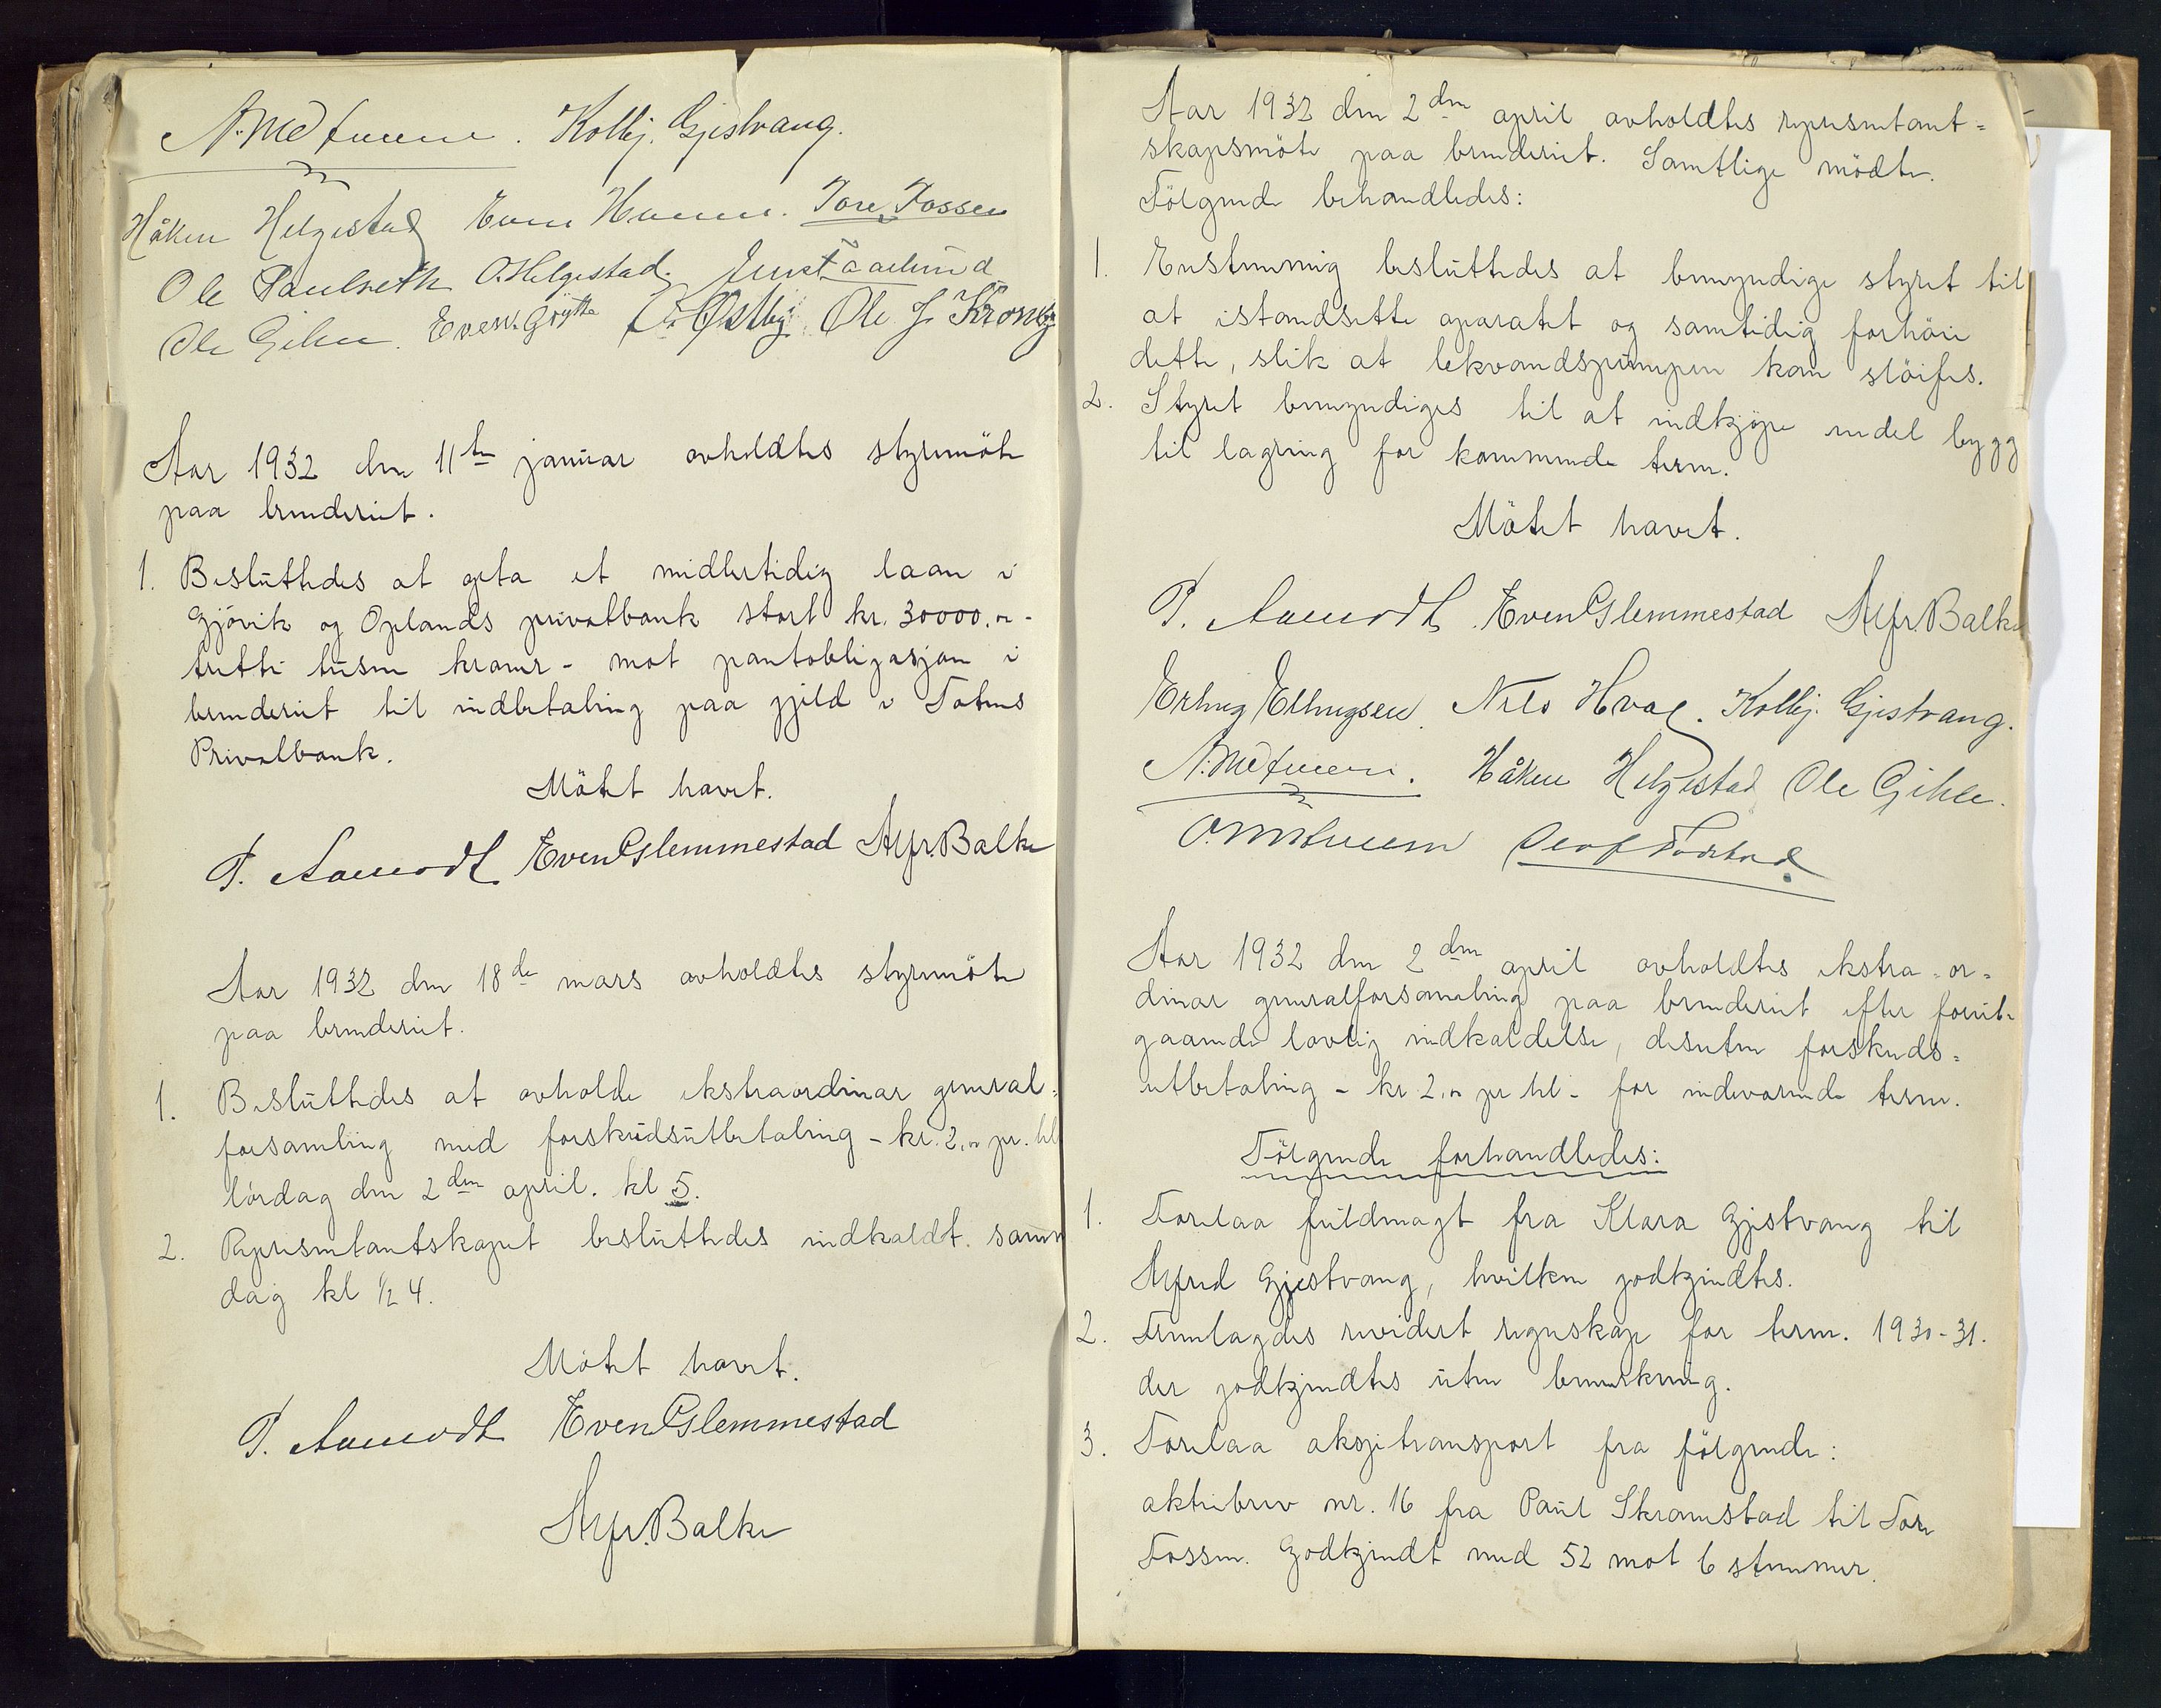 Kolbj. Gjestvang.
Håken Helgestad Even Hunn. Tore Fossen
Ole Paulseth O. Helgestad.
Ole Gihle. Even Grøtte O. Østby. Ole J. Kronby
Aar 1932 den 11te januar avholdtes styremöte
paa brenderiet.
1. Besluttedes at opta et midlertidig laan i
Gjövik og Oplands privatbank stort kr. 30000.00 -
tretti tusen kroner - mot pantobligasjon i
brenderiet til indbetaling paa gjæld i Totens
Privatbank.
Mötet hævet.
P. Aamodt Even Glemmestad Alfr. Balke
Aar 1932 den 18de mars avholdtes styremöte
paa brenderiet.
1. Besluttedes at avholde ekstraordinær general-
forsamling med forskudsutbetaling - kr. 2,00 pr. hl
lördag den 2den april. kl 5.
2. Representantskapet besluttedes indkaldt. samme
dag kl ½ 4.
Mötet hævet.
P. Aamodt Even Glemmestad
Alfr. Balke
Aar 1932 den 2den april avholdtes representant-
skapsmöte paa brenderiet. Samtlige mödte.
Fölgende behandledes:
1. Enstemmig besluttedes at bemyndige styret til
at istandsætte aparatet og samtidig forhöie
dette, slik at lekvandspumpen kan slöifes.
2. Styret bemyndiges til at indkjøpe endel bygg
til lagring for kommende term.
Mötet hævet.
P. Aamodt Even Glemmestad Alfr. Balke
Erling Ellingsen Nils Hval. Kolbj. Gjestvang.
Håken Helgestad Ole Gihle.
Aar 1932 den 2den april avholdtes ekstra-or-
dinær generalforsamling paa brenderiet efter forut-
gaaende lovlig indkaldelse, desuten forskuds-
utbetaling - kr 2,00 pr hl - for indeværende term.
Fölgende forhandledes:
1. Forelaa fuldmagt fra Klara Gjestvang til
Alfred Gjestvang, hvilken godkjendtes.
2. Fremlagdes revidert regnskap for term. 1930-31.
der godkjendtes uten bemerkning.
3. Forelaa aksjetransport fra fölgende:
aktiebrev nr. 16 fra Paul Skramstad til Tore
Fossen. Godkjendt med 52 mot 6 stemmer.